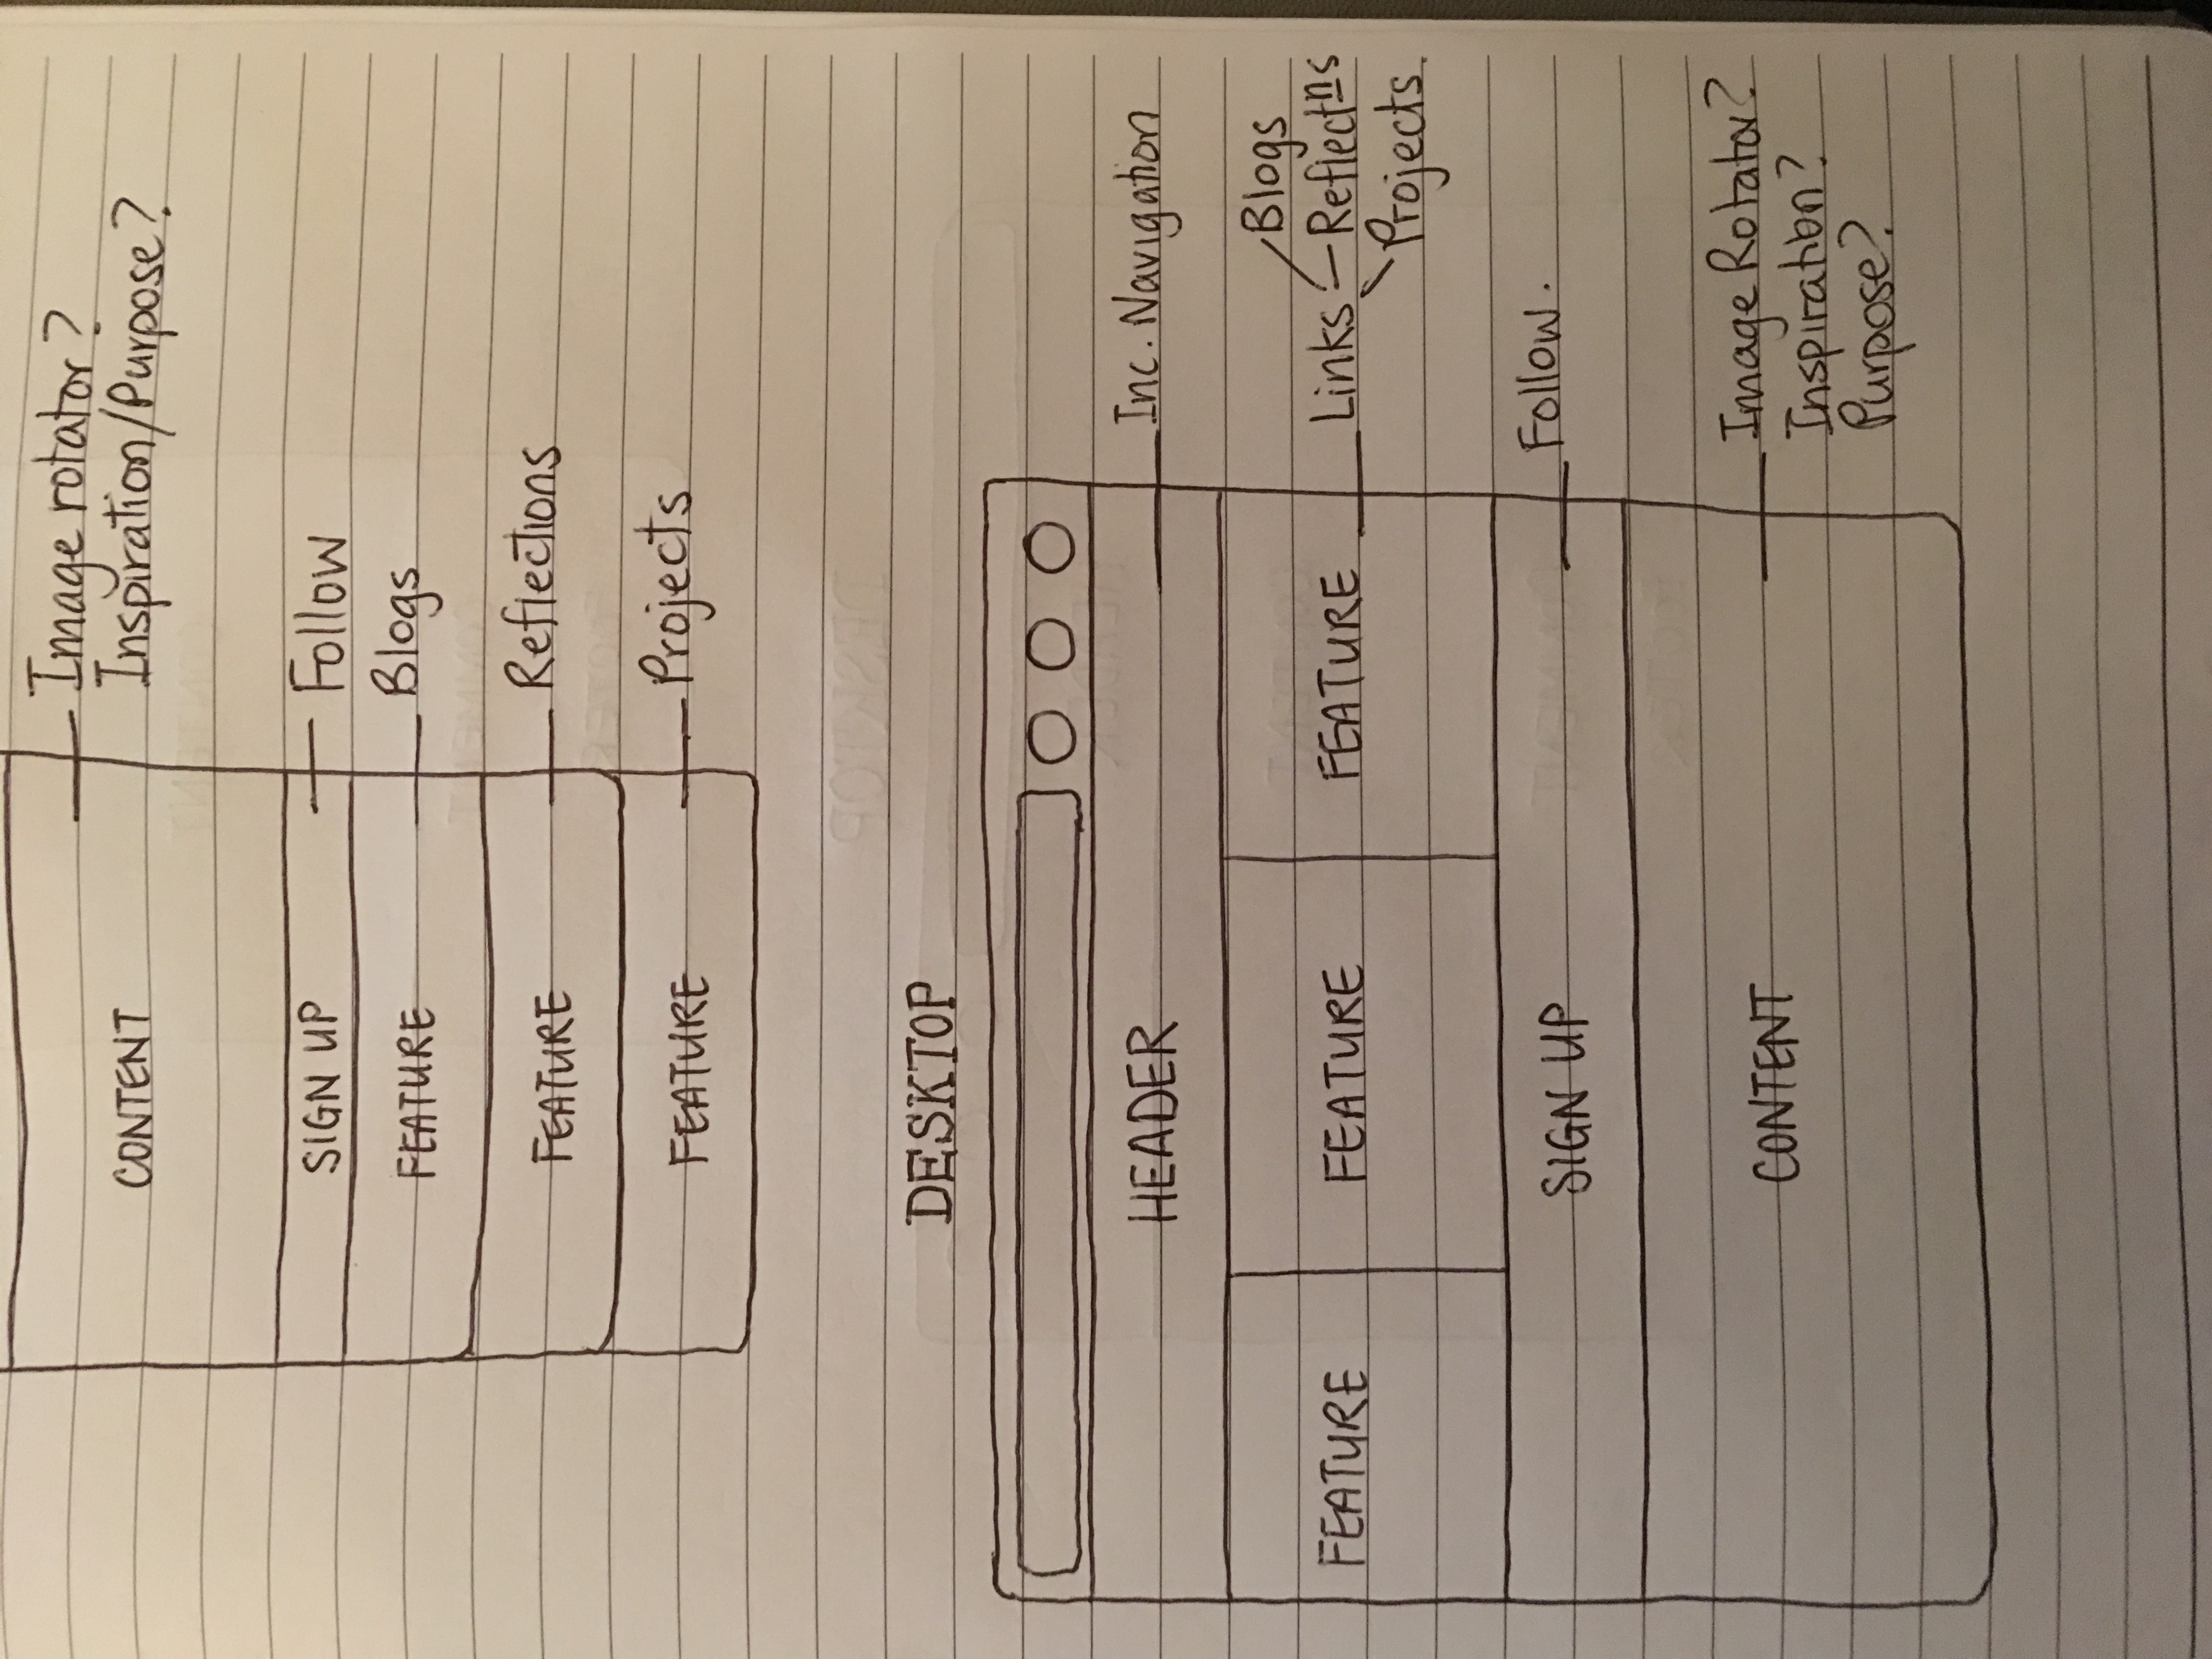 CONTENT
Image rotator?
Inspiration/Purpose?
SIGN UP
Follow
FEATURE
Blogs
FEATURE
Reflections
FEATURE
Projects
DESKTOP
HEADER
Inc. Navigation
FEATURE
FEATURE
FEATURE
Links
Blogs
Reflectns
Projects.
SIGN UP
Follow.
CONTENT
Image Rotator?
Inspiration?
Purpose?